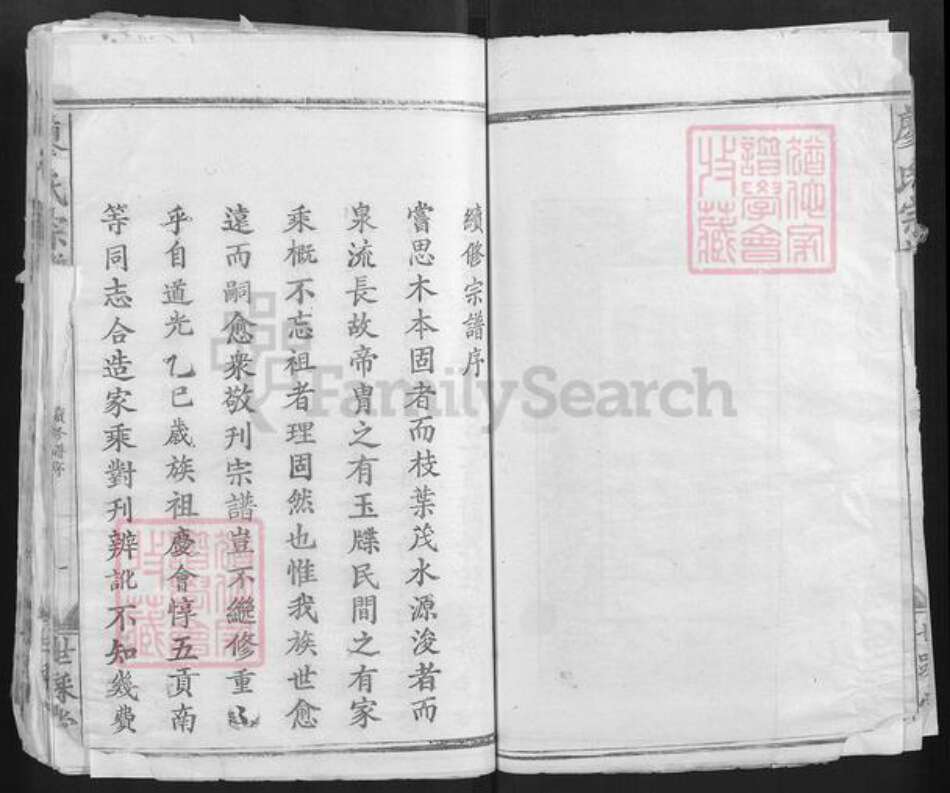 續修宗譜序
嘗思木本固者而枝葉茂水源浚者而
泉流長故帝胄之有玉牒民間之有家
乘概不忘祖者理固然也惟我族世愈
遠而嗣愈衆敬刋宗譜豈不繼修重
乎自道光乙巳歲族祖慶會惇五貢南
等同志合造家乘對刋辨訛不知幾費
氏宗
續修譜序
一
世
FamilySearch
譜學會
藏